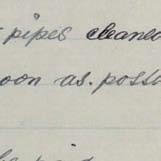 pipes cleaned
oon as. poss